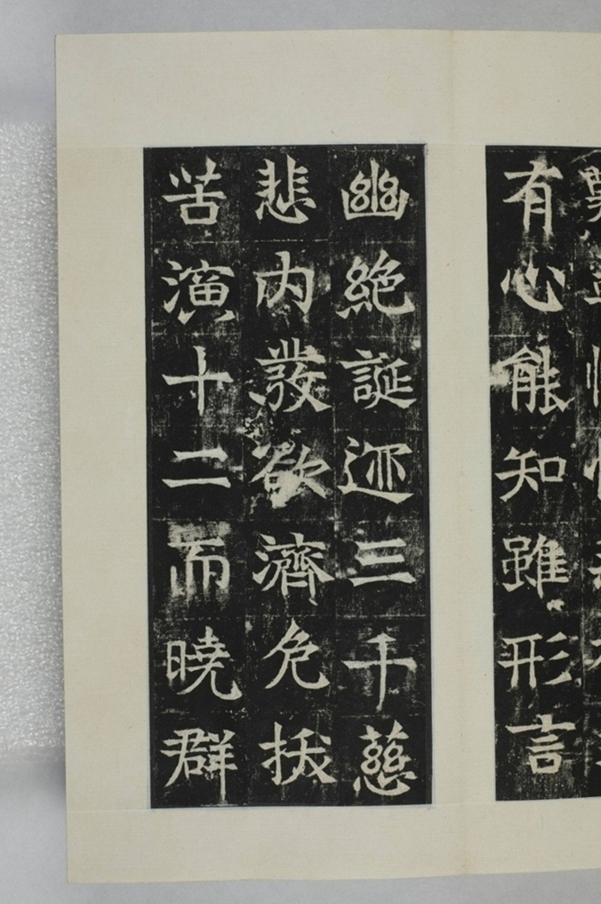 有心能知雖形言
幽絶誕迹三千慈
悲内發欲濟危拔
苦演十二而曉群